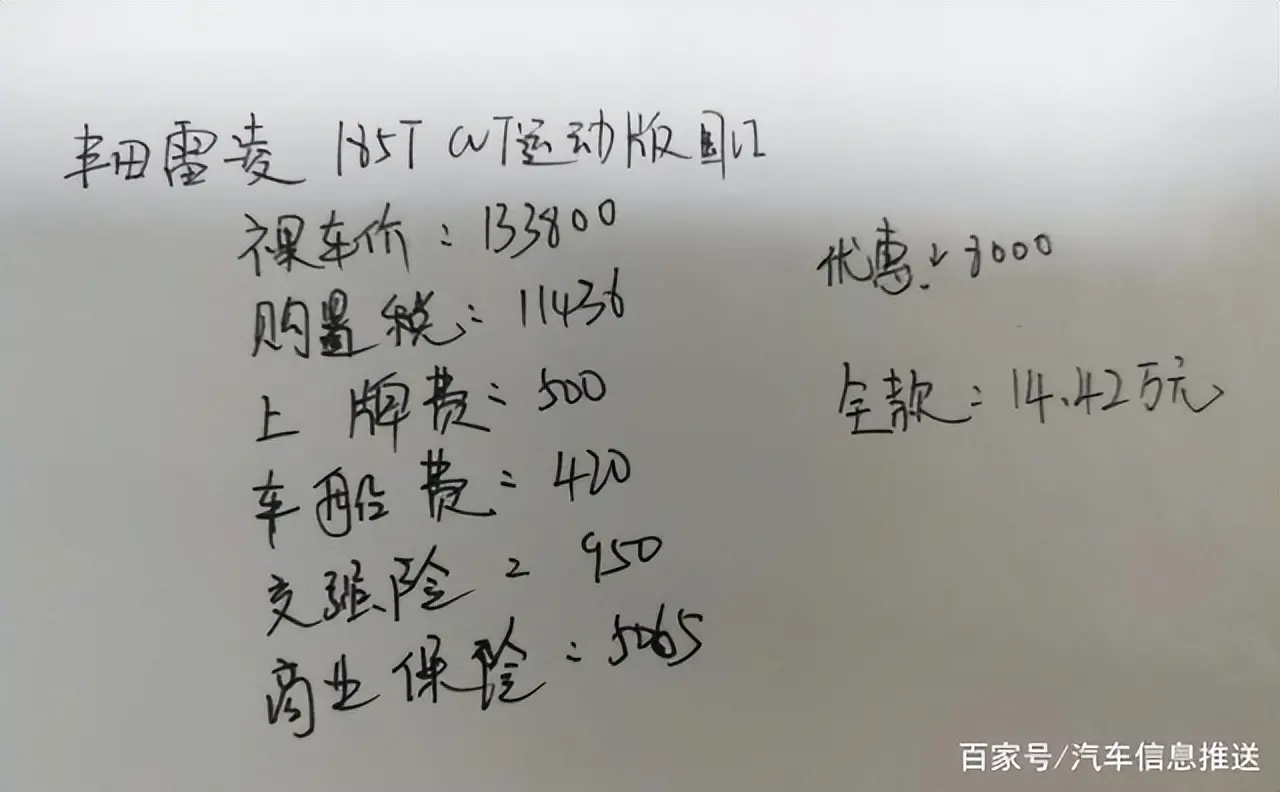 丰田雷凌 185T CVT运动版国VI
裸车价：133800
优惠：8000
购置税：11436
上牌费：500
全款：14.42万元
车船费：420
交强险：950
商业保险：5065
百家号/汽车信息推送